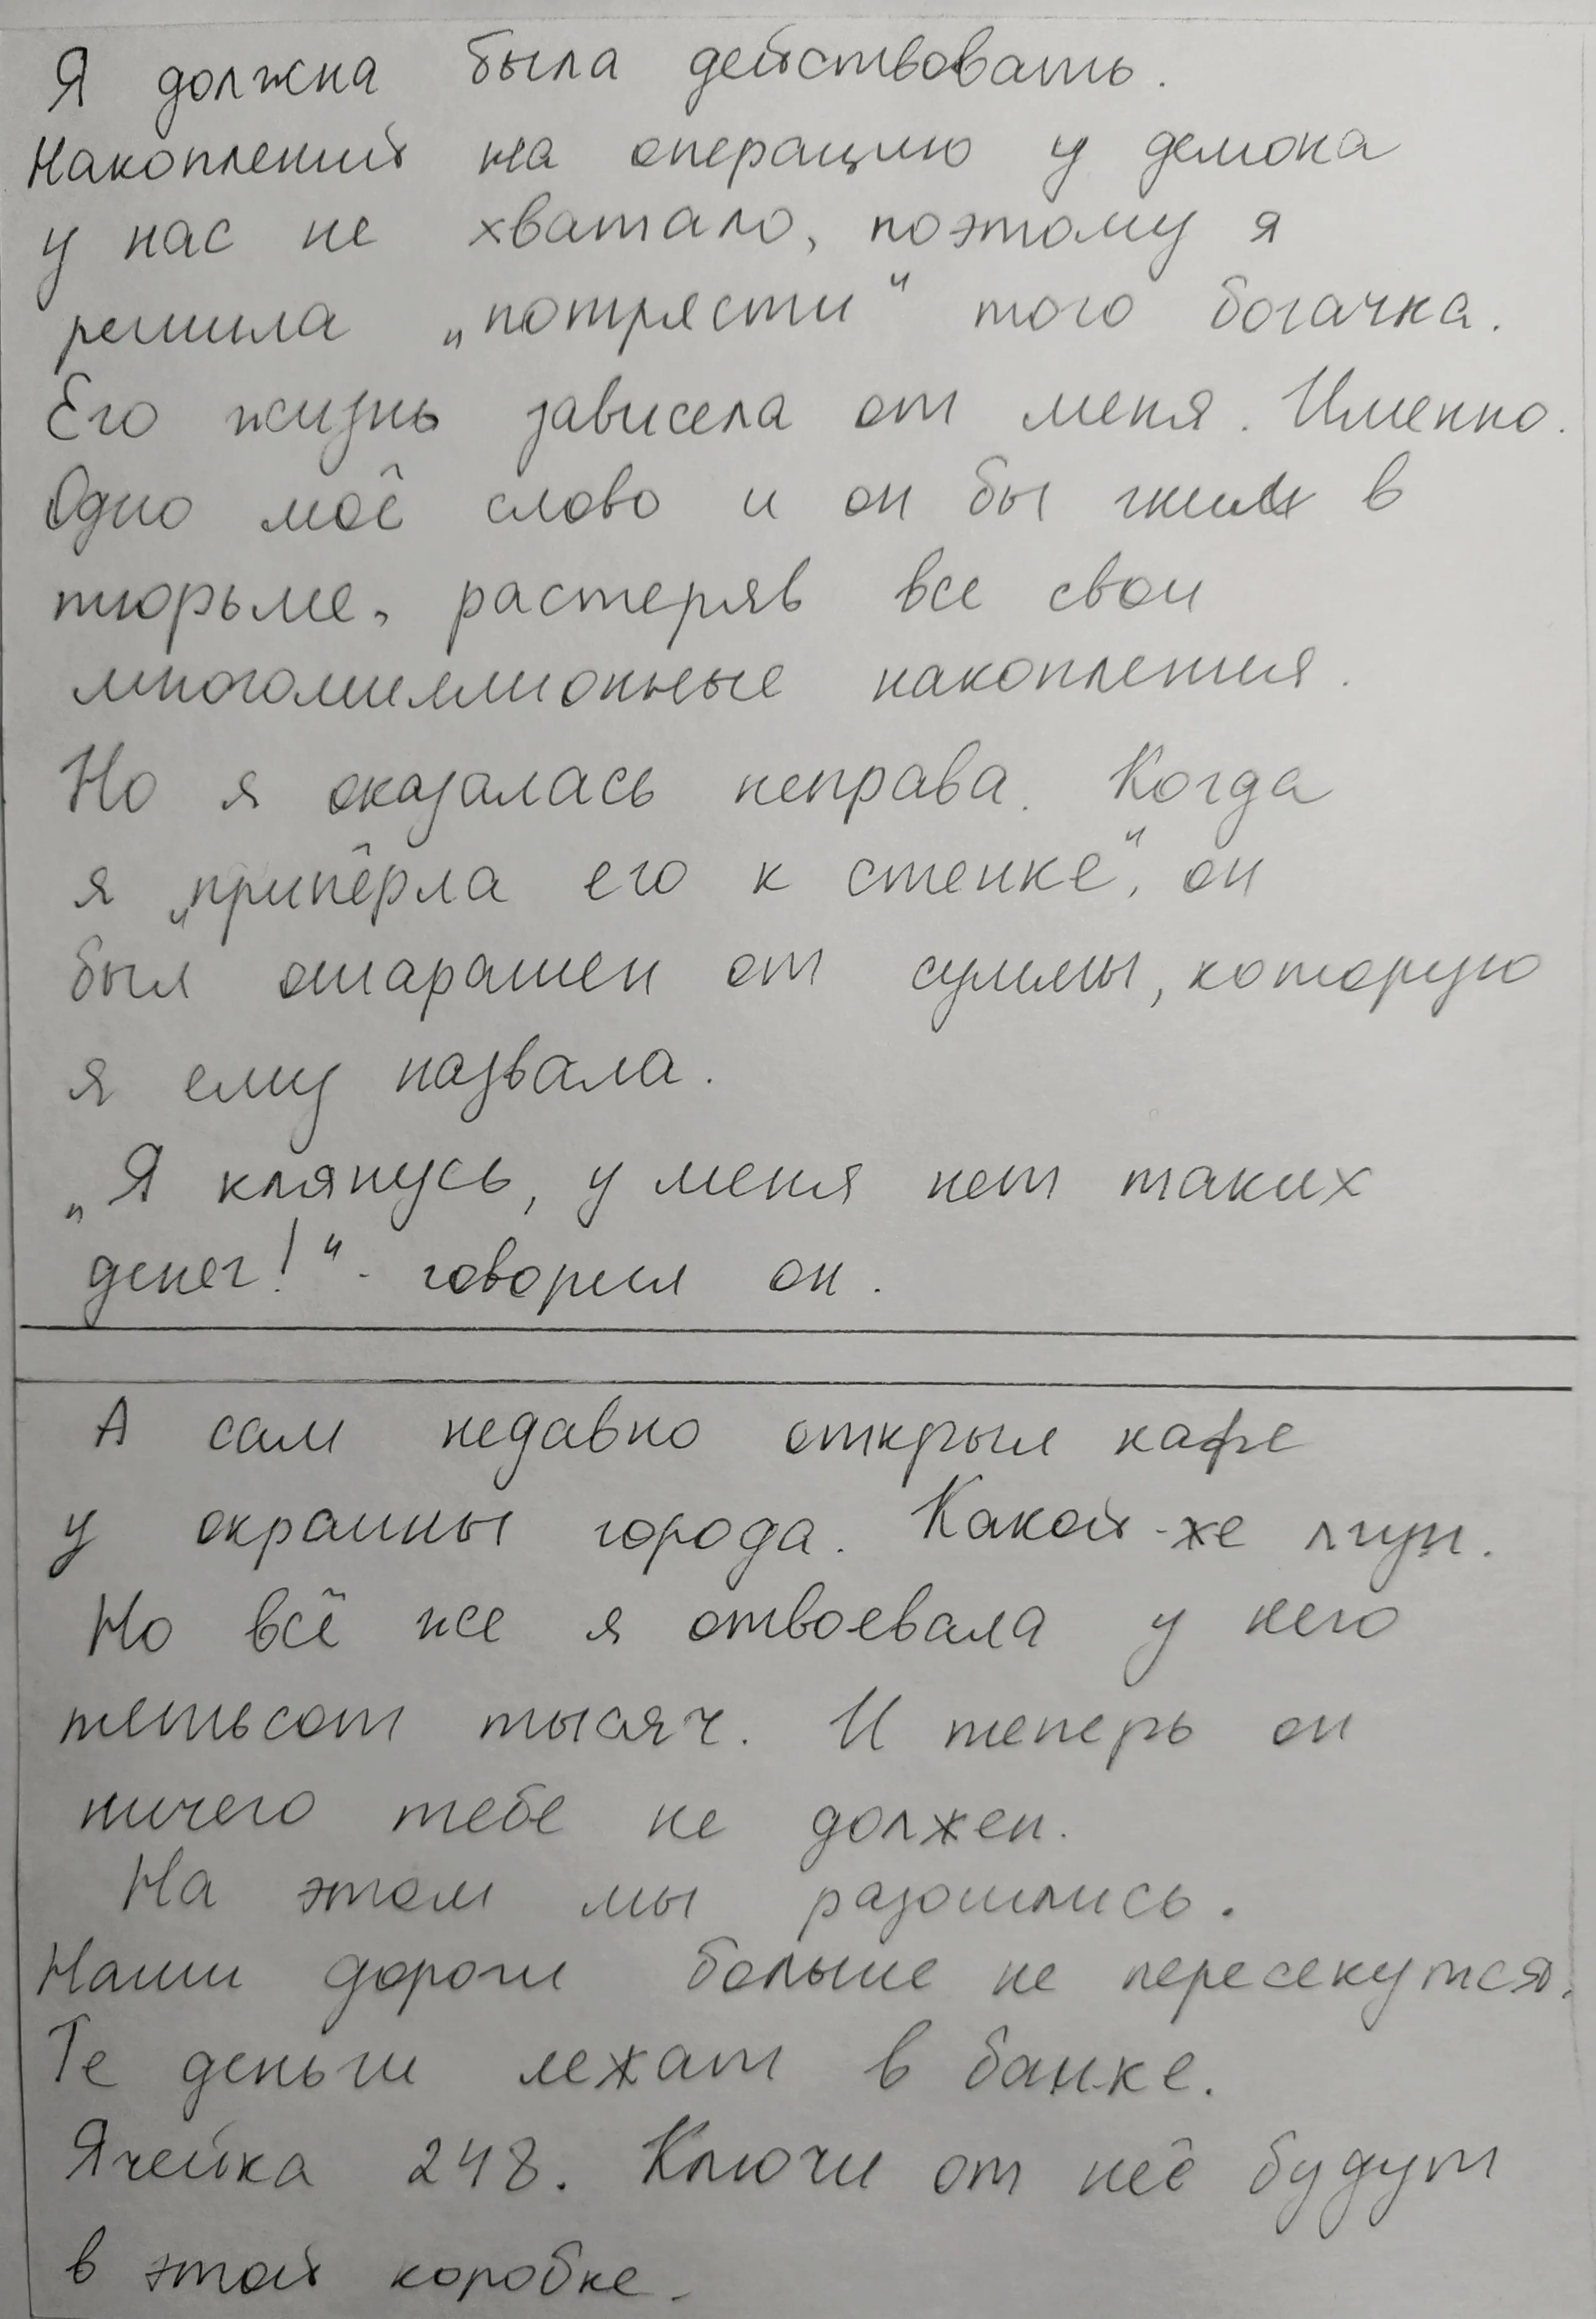 Я должна была действовать.
Накоплений на операцию у демона
у нас не хватало, поэтому я
решила „потрясти“ того богачка.
Его жизнь зависела от меня. Именно.
Одно моё слово и он бы гнил в
тюрьме, растеряв все свои
многомиллионные накопления.
Но я оказалась неправа. Когда
я „припёрла его к стенке“, он
был ошарашен от суммы, которую
я ему назвала.
„Я клянусь, у меня нет таких
денег!“ - говорил он.
А сам недавно открыл кафе
у окраины города. Какой-же лгун.
Но всё же я отвоевала у него
пятьсот тысяч. И теперь он
ничего тебе не должен.
На этом мы разошлись.
Наши дороги больше не пересекутся.
Те деньги лежат в банке.
Ячейка 248. Ключи от неё будут
в этой коробке.